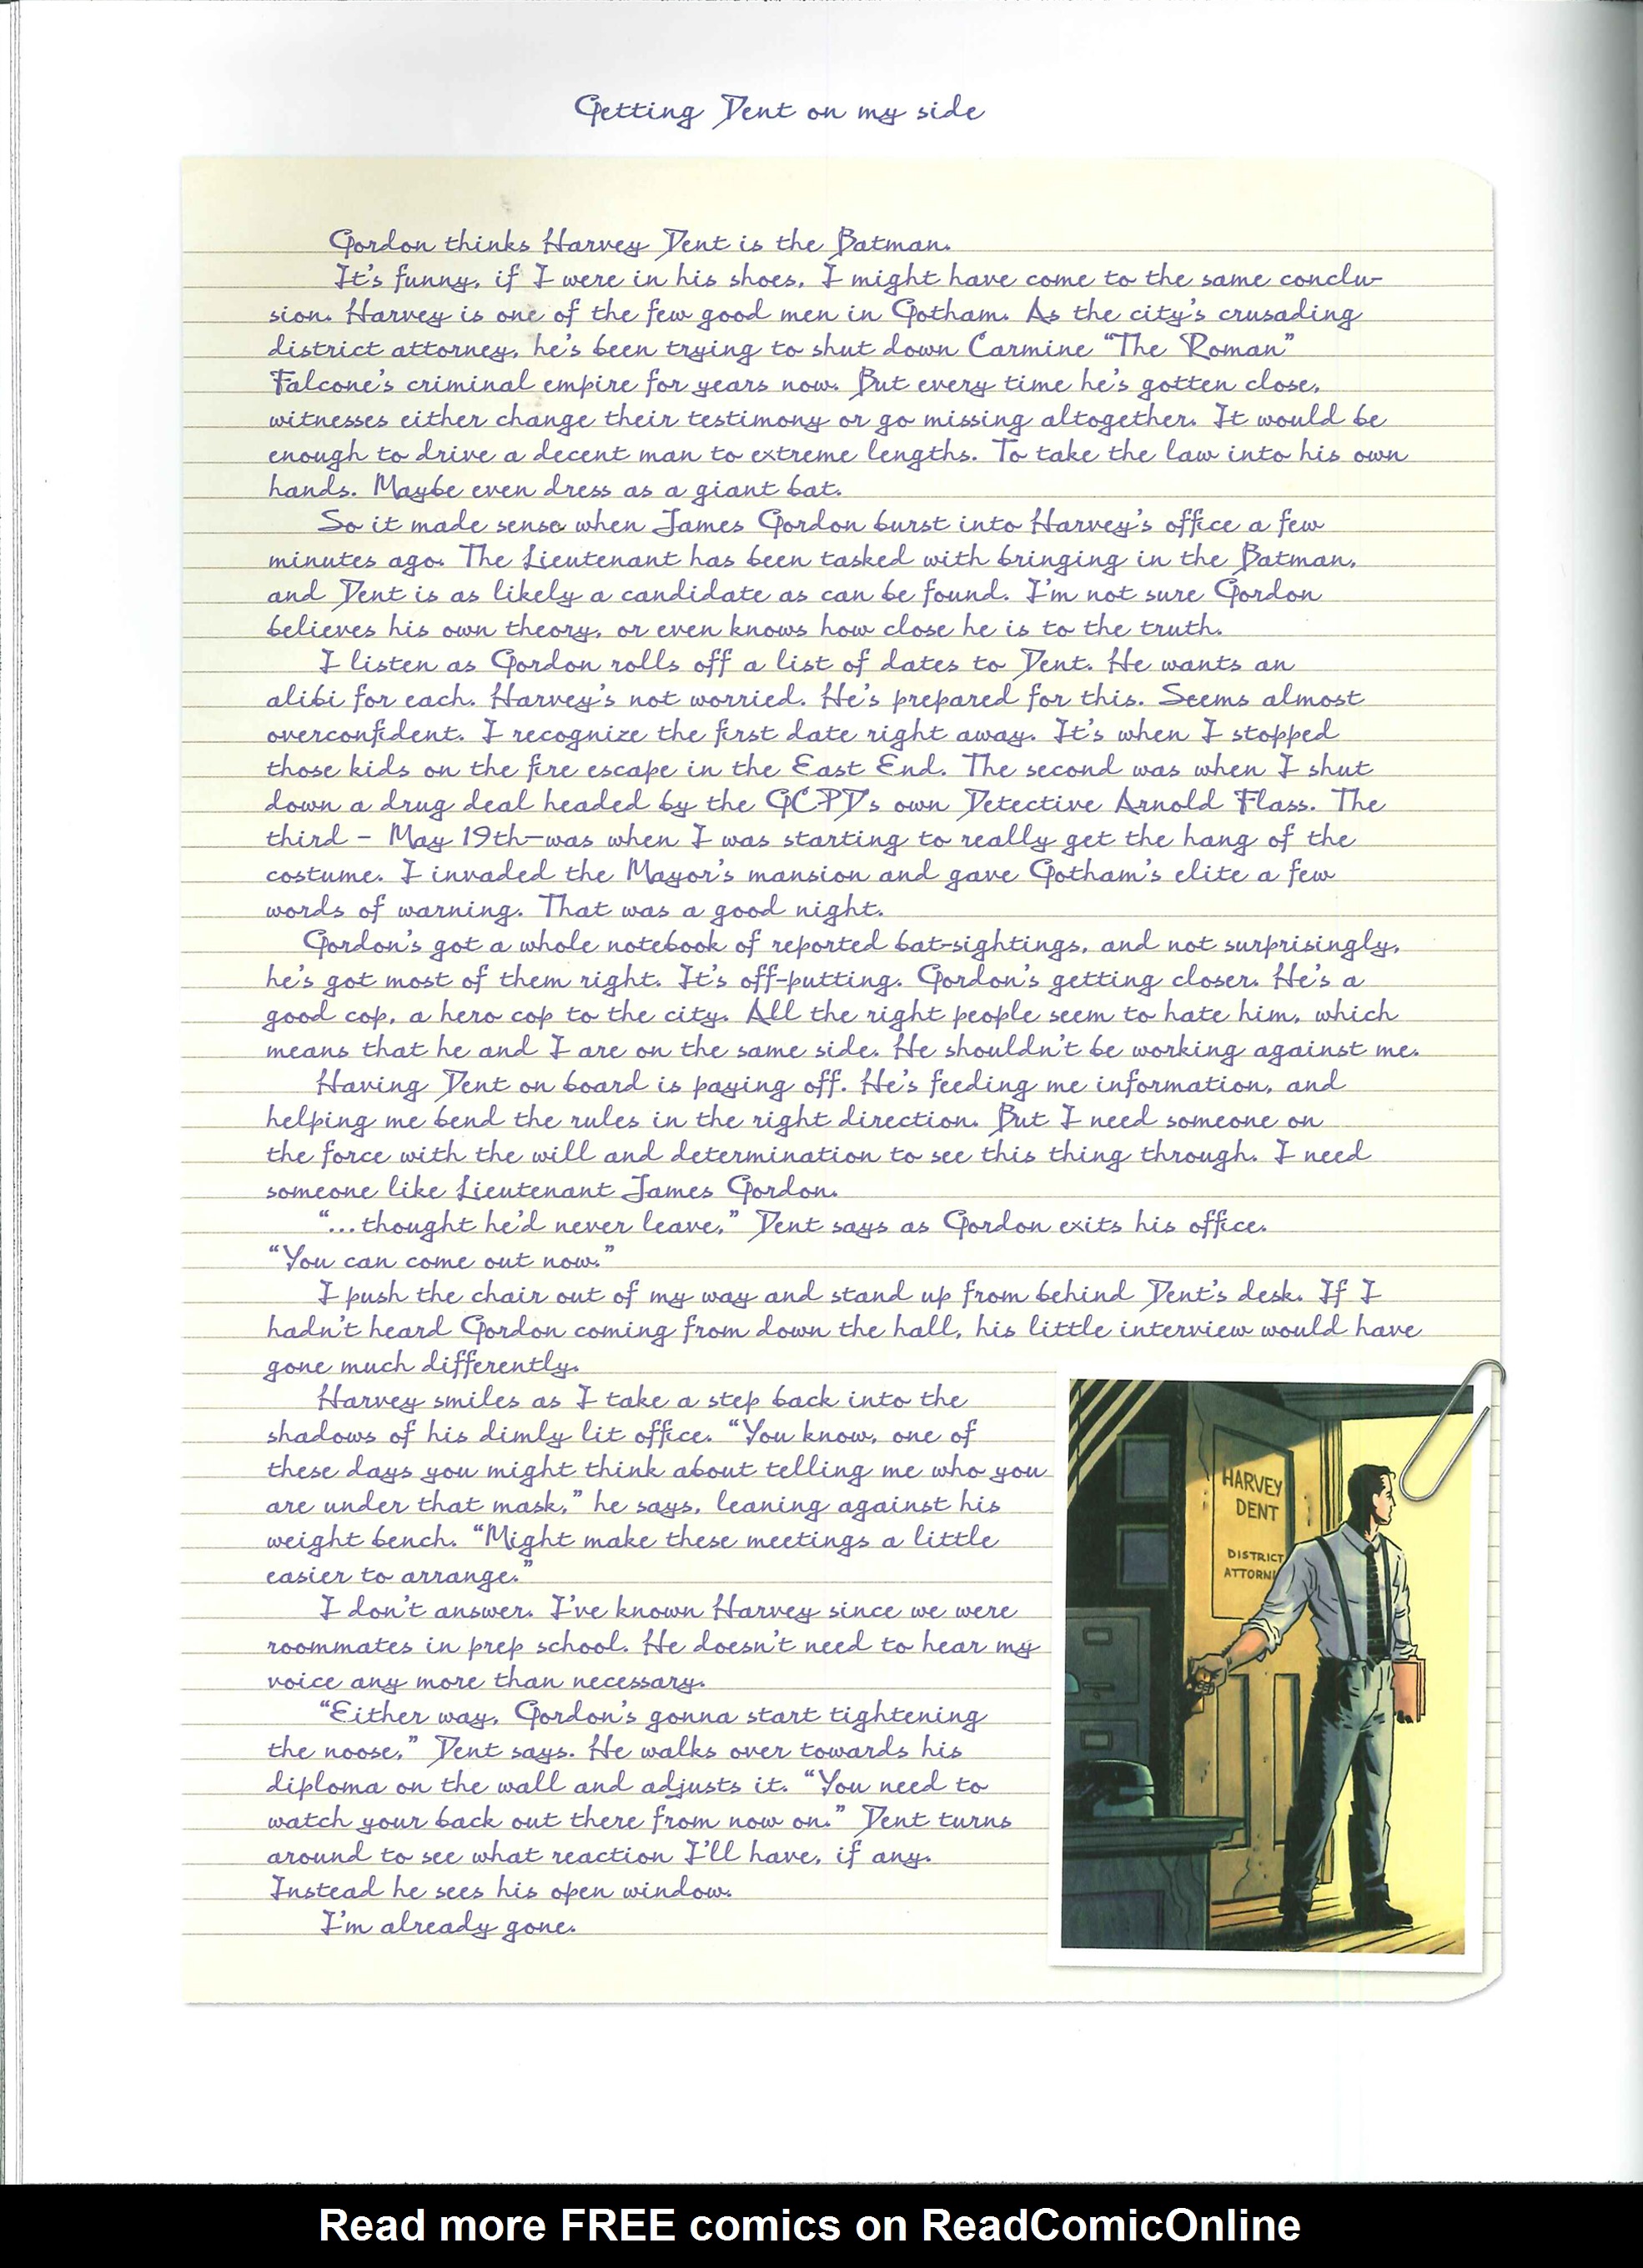 Getting Dent on my side
Gordon thinks Harvey Dent is the Batman.
It's funny, if I were in his shoes, I might have come to the same conclu-
sion. Harvey is one of the few good men in Gotham. As the city's crusading
district attorney, he's been trying to shut down Carmine “The Roman”
Falcone's criminal empire for years now. But every time he's gotten close,
witnesses either change their testimony or go missing altogether. It would be
enough to drive a decent man to extreme lengths. To take the law into his own
hands. Maybe even dress as a giant bat.
So it made sense when James Gordon burst into Harvey's office a few
minutes ago. The Lieutenant has been tasked with bringing in the Batman,
and Dent is as likely a candidate as can be found. I'm not sure Gordon
believes his own theory, or even knows how close he is to the truth.
I listen as Gordon rolls off a list of dates to Dent. He wants an
alibi for each. Harvey's not worried. He's prepared for this. Seems almost
overconfident. I recognize the first date right away. It's when I stopped
those kids on the fire escape in the East End. The second was when I shut
down a drug deal headed by the GCPD's own Detective Arnold Flass. The
third - May 19th—was when I was starting to really get the hang of the
costume. I invaded the Mayor's mansion and gave Gotham's elite a few
words of warning. That was a good night.
Gordon's got a whole notebook of reported bat-sightings, and not surprisingly,
he's got most of them right. It's off-putting. Gordon's getting closer. He's a
good cop, a hero cop to the city. All the right people seem to hate him, which
means that he and I are on the same side. He shouldn't be working against me.
Having Dent on board is paying off. He's feeding me information, and
helping me bend the rules in the right direction. But I need someone on
the force with the will and determination to see this thing through. I need
someone like Lieutenant James Gordon.
“...thought he'd never leave,” Dent says as Gordon exits his office.
“You can come out now.”
I push the chair out of my way and stand up from behind Dent's desk. If I
hadn't heard Gordon coming from down the hall, his little interview would have
gone much differently.
Harvey smiles as I take a step back into the
shadows of his dimly lit office. “You know, one of
these days you might think about telling me who you
are under that mask,” he says, leaning against his
weight bench. “Might make these meetings a little
easier to arrange.”
I don't answer. I've known Harvey since we were
roommates in prep school. He doesn't need to hear my
voice any more than necessary.
“Either way, Gordon's gonna start tightening
the noose,” Dent says. He walks over towards his
diploma on the wall and adjusts it. “You need to
watch your back out there from now on.” Dent turns
around to see what reaction I'll have, if any.
Instead he sees his open window.
I'm already gone.
HARVEY
DENT
DISTRICT
ATTORN
Read more FREE comics on ReadComicOnline